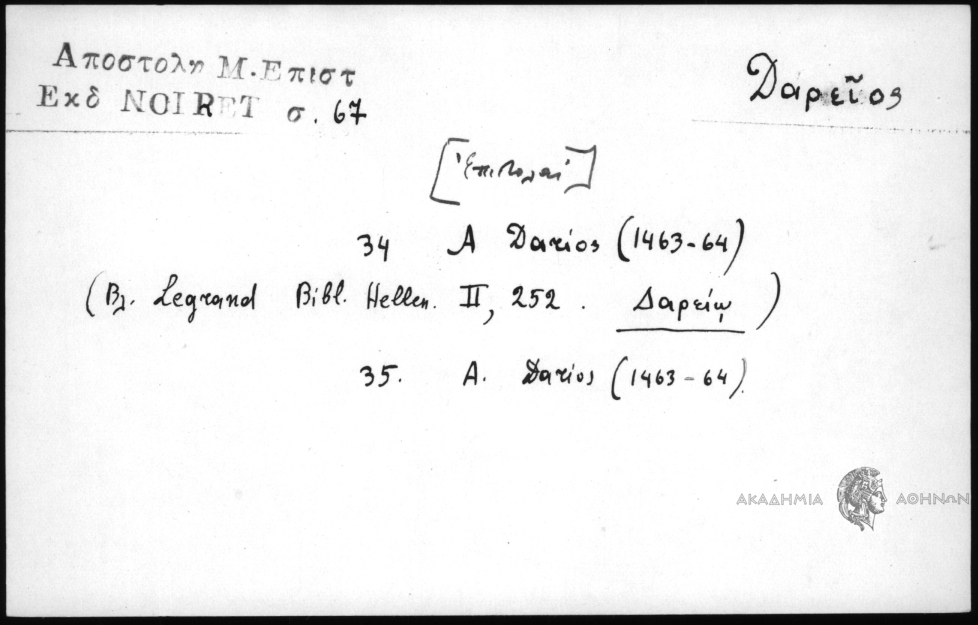 Αποστολη Μ. Επιστ
Εκδ NOIRET σ. 67
Δαρεῖος
[Ἐπιστολαὶ]
34 A Darios (1463-64)
(Βλ. Legrand Bibl. Hellen. II, 252. Δαρείῳ)
35. A. Darios (1463-64)
ΑΚΑΔΗΜΙΑ ΑΘΗΝΩΝ